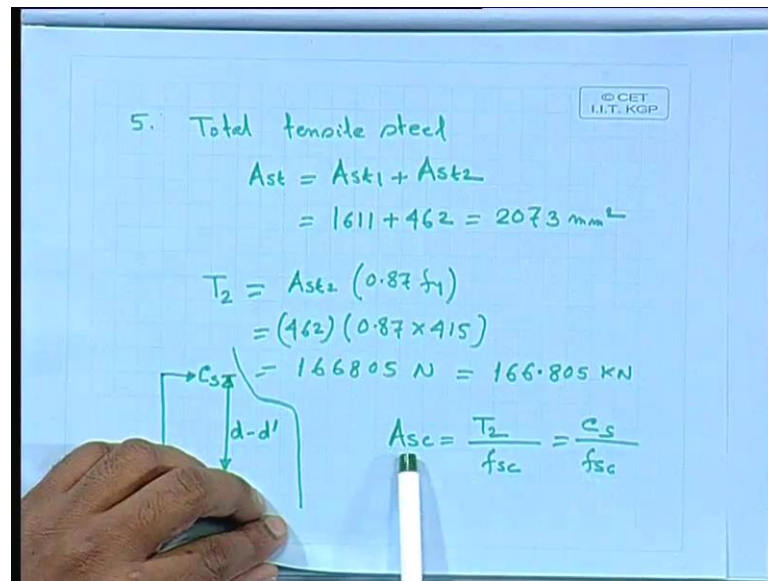 © CET
I.I.T. KGP
5. Total tensile steel
Ast = Ast1 + Ast2
= 1611 + 462 = 2073 mm²
T2 = Ast2 (0.87 fy)
= (462) (0.87 × 415)
= 166805 N = 166.805 KN
Cs
d-d'
Asc = T2 / fsc = Cs / fsc